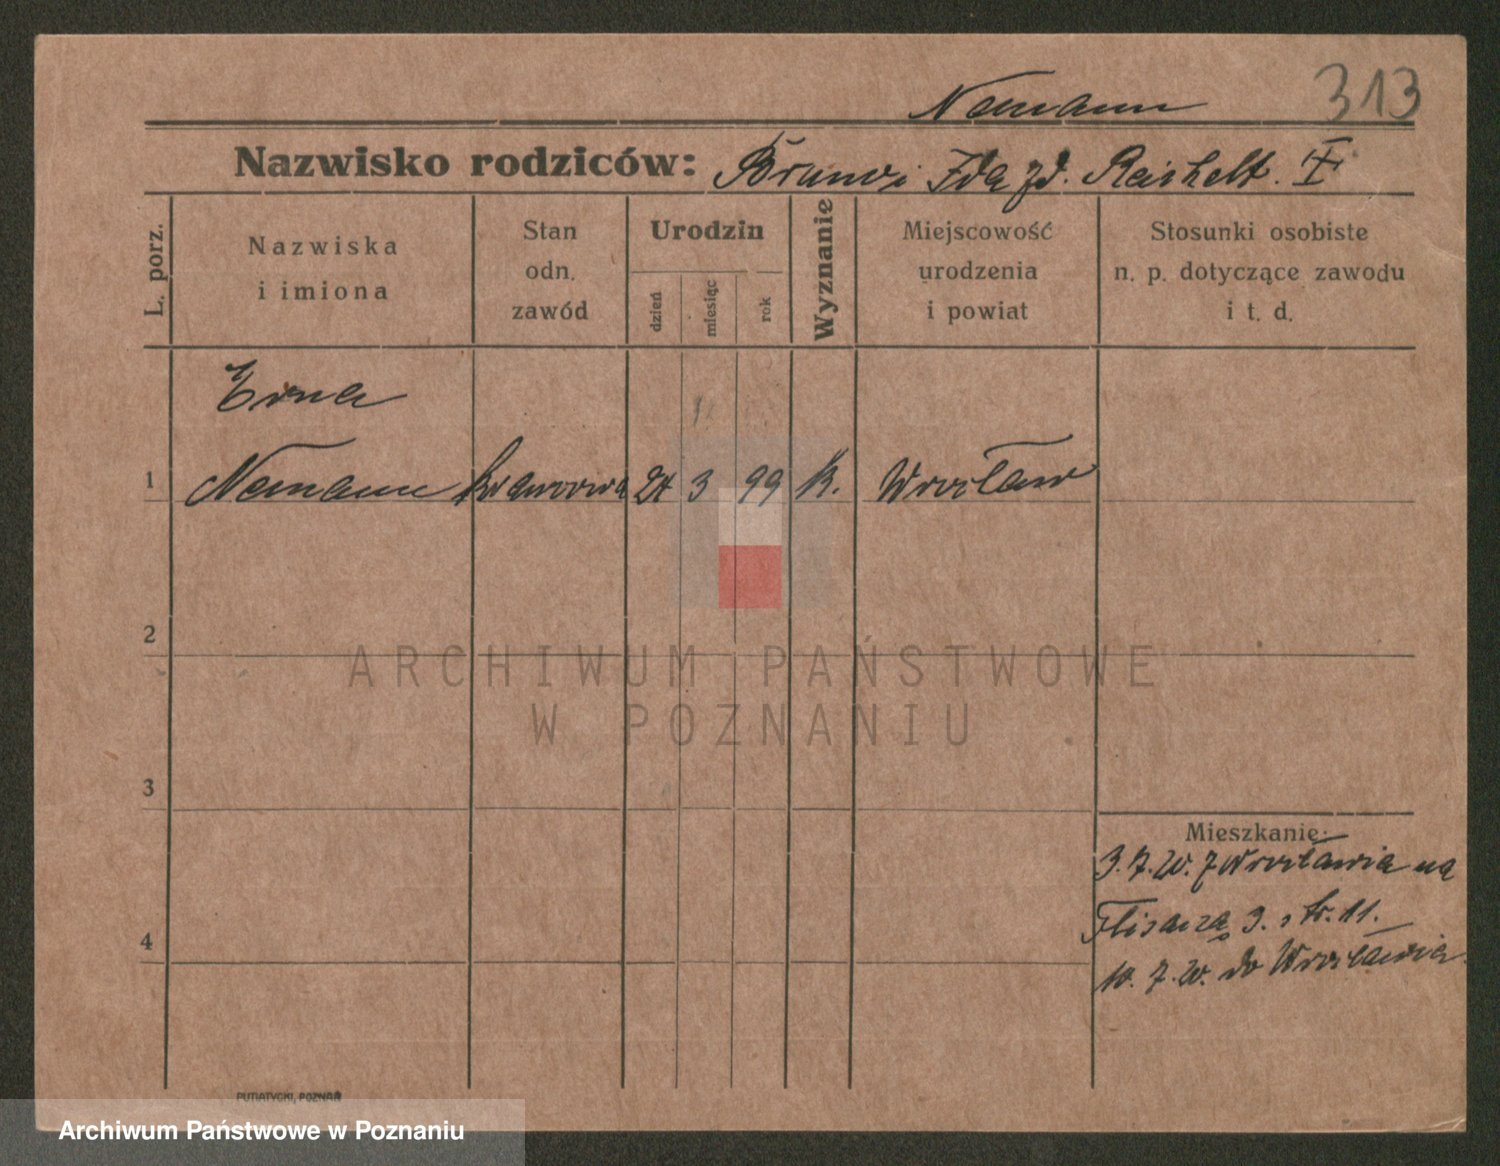 313
Nemann
Nazwisko rodziców: Brunoi Ida zd. Reichelt.
L. porz.
Nazwiska
i imiona
Stan
odn.
zawód
Urodzin
dzień
miesiąc
rok
Wyznanie
Miejscowość
urodzenia
i powiat
Stosunki osobiste
n. p. dotyczące zawodu
i t. d.
Erna
1 Nemann krawcowa 24 3 99 K. Wrocław
2
3
4
Mieszkanie:
3.7.20. z Wrocławia na
Flisacza 3. 11.
10.7.20. do Wrocławia.
PUTIATYCKI, POZNAŃ
ARCHIWUM PAŃSTWOWE
W POZNANIU
Archiwum Państwowe w Poznaniu